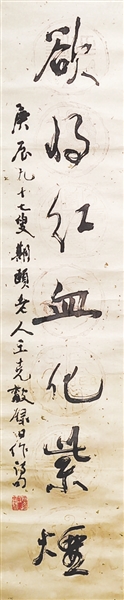 欲将红血化紫烟
庚辰九十七叟期颐老人王克敌录旧作词句